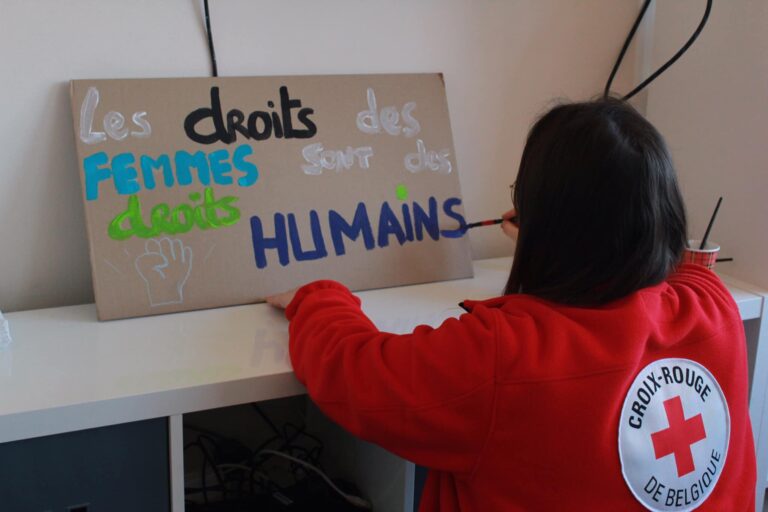 Les droits des
FEMMES sont des
droits HUMAiNS
CROIX-ROUGE
DE BELGIQUE